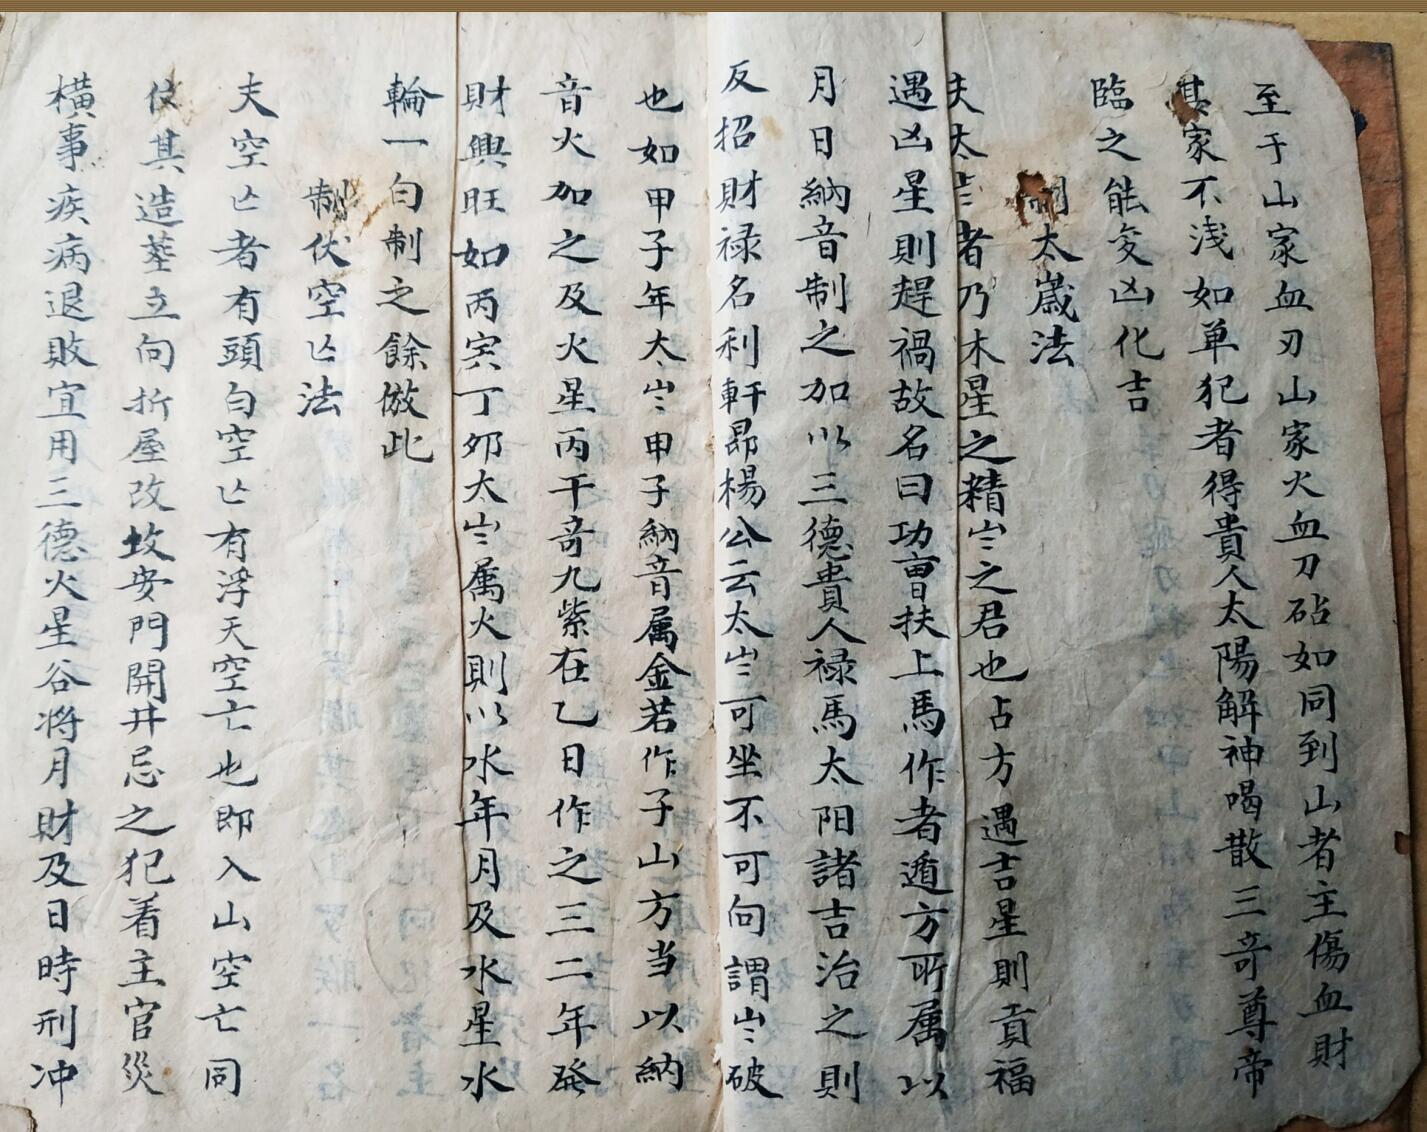 至于山家血刃山家火血刀砧如同到山者主傷血財
其家不浅如单犯者得貴人太陽解神喝散三奇尊帝
臨之能变凶化吉
制太歲法
夫太岁者乃木星之精岁之君也占方遇吉星則貢福
遇凶星則趕禍故名曰功曹扶上馬作者遁方所属以
月日納音制之加以三德貴人禄馬太阳諸吉治之則
反招財禄名利軒昂楊公云太岁可坐不可向謂岁破
也如甲子年太岁甲子納音属金若作子山方当以納
音火加之及火星丙干奇九紫在乙日作之三二年發
財興旺如丙寅丁夘太岁属火則以水年月及水星水
輪一白制之餘倣此
制伏空亡法
夫空亡者有頭白空亡有浮天空亡也即入山空亡同
位其造葬立向折屋改坟安門開井忌之犯着主官災
橫事疾病退敗宜用三德火星谷将月財及日時刑冲